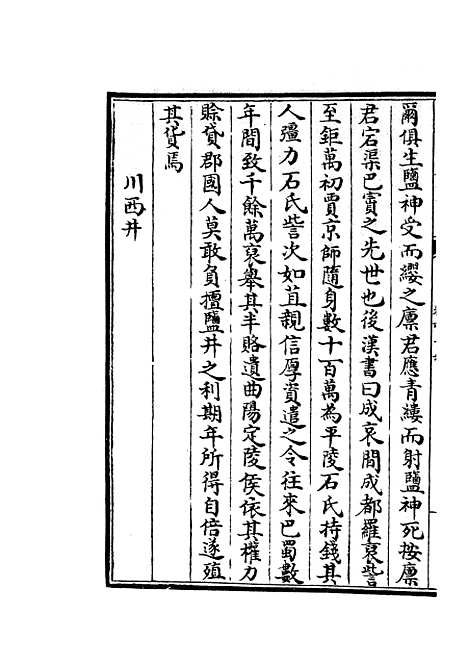 爾俱生鹽神受而纓之廪君應青縷而射鹽神死按廪
君宕渠巴賨之先世也後漢書曰成哀間成都羅裒訾
至鉅萬初賈京師隨身數十百萬為平陵石氏持錢其
人彊力石氏訾次如苴親信厚資遣之令往來巴蜀數
年間致千餘萬裒舉其半賂遺曲陽定陵侯依其權力
賒貸郡國人莫敢負擅鹽井之利期年所得自倍遂殖
其貨焉
川西井